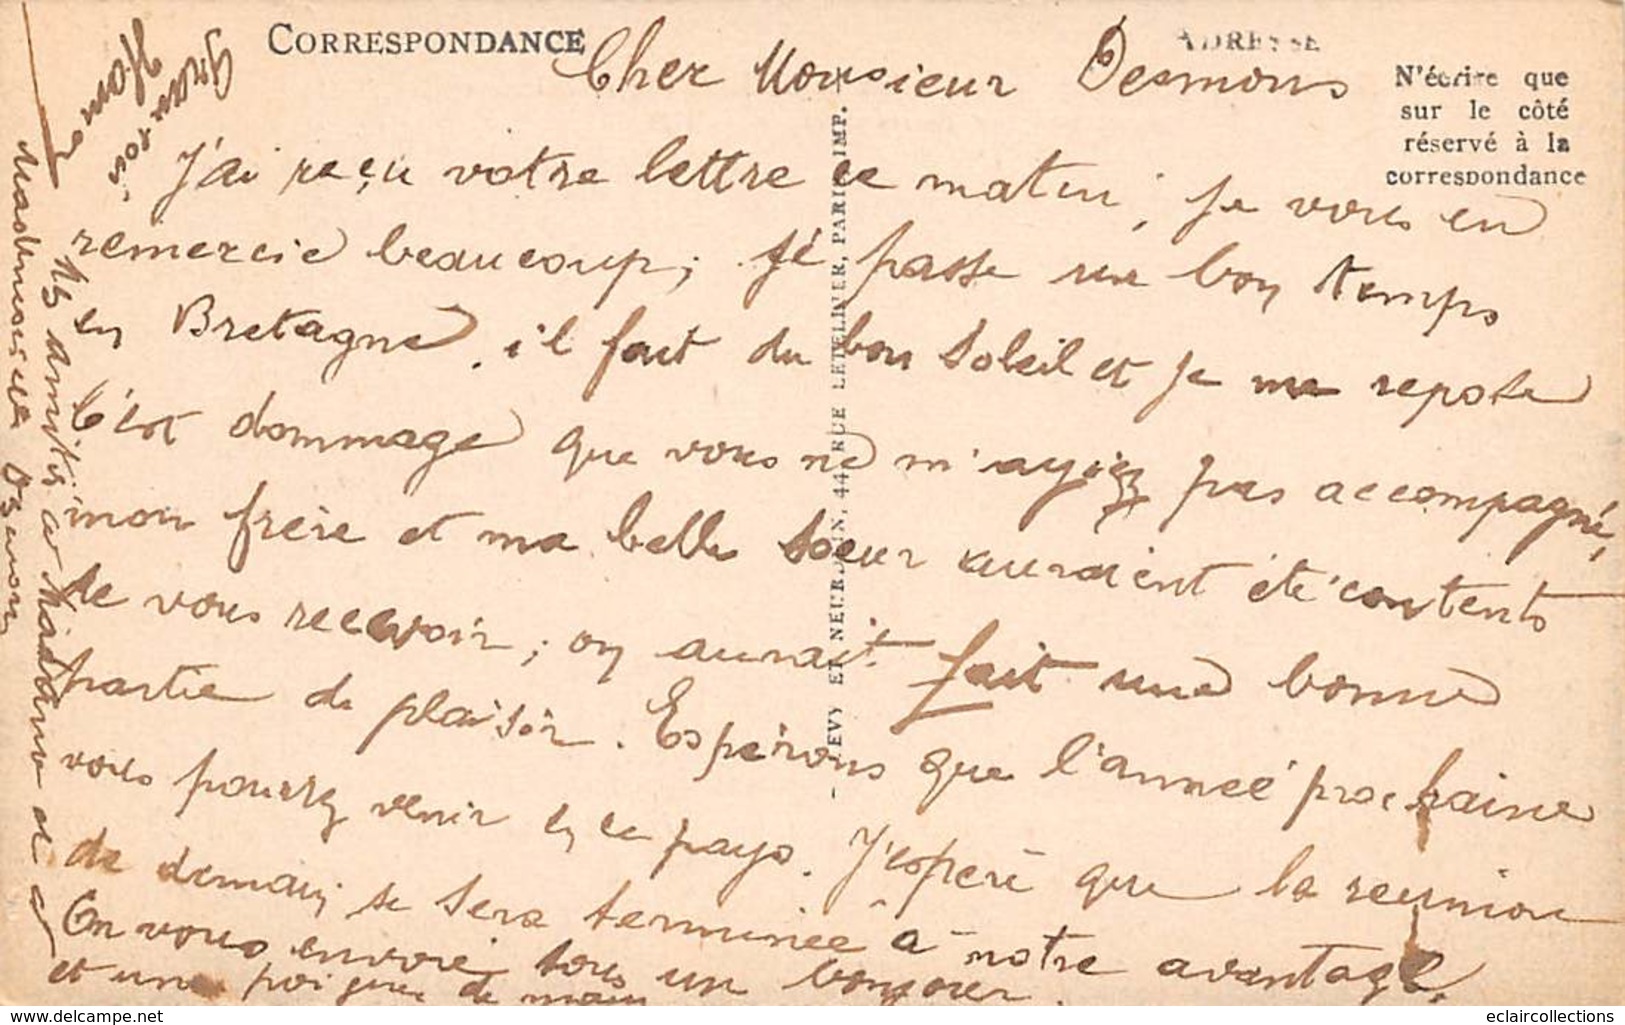 CORRESPONDANCE
ADRESSE
N'écrire que
sur le côté
réservé à la
correspondance
Cher Monsieur Desmons
J'ai reçu votre lettre ce matin, je vous en
remercie beaucoup; je passe un bon temps
en Bretagne, il fait du bon soleil et je me repose
C'est dommage que vous ne m'ayiez pas accompagné,
mon frère et ma belle soeur auraient été contents
de vous recevoir; on aurait fait une bonne
partie de plaisir. Espérons que l'année prochaine
vous pourrez venir en ce pays. J'espère que la reunion
de demain se sera terminée à notre avantage.
On vous envoie tous un bonjour
et une poignée de main
Ms amitiés à Madame et à
Mademoiselle
LEVY ET NEURDEIN, 44 RUE LETELLIER, PARIS IMP.
eclaircollections